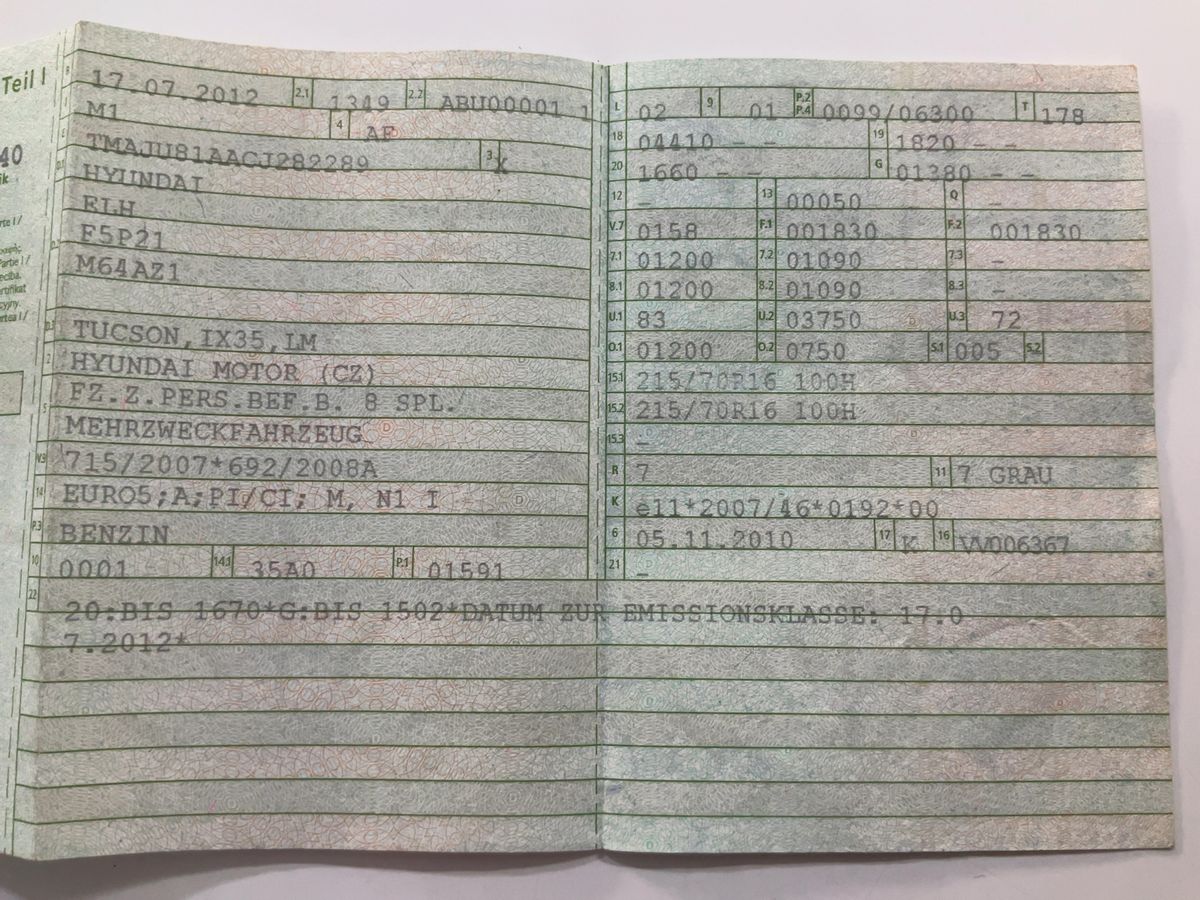 Teil I
40
B 17.07.2012 2.1 1349 2.2 ABU00001 1
J M1 4 AF
E TMAJU81AACJ282289 3 K
D.1 HYUNDAI
ELH
D.2 F5P21
M64AZ1
D.3 TUCSON,IX35,LM
2 HYUNDAI MOTOR (CZ)
5 FZ.Z.PERS.BEF.B. 8 SPL.
MEHRZWECKFAHRZEUG
V.9 715/2007*692/2008A
14 EURO5;A;PI/CI; M, N1 I
P.3 BENZIN
10 0001 14.1 35A0 P.1 01591
L 02 9 01 P.2 P.4 0099/06300 T 178
18 04410 – – 19 1820 – –
20 1660 – – G 01380 – –
12 – 13 00050 Q –
V.7 0158 F.1 001830 F.2 001830
7.1 01200 7.2 01090 7.3 –
8.1 01200 8.2 01090 8.3 –
U.1 83 U.2 03750 U.3 72
O.1 01200 O.2 0750 S.1 005 S.2
15.1 215/70R16 100H
15.2 215/70R16 100H
15.3 –
R 7 11 7 GRAU
K e11*2007/46*0192*00
6 05.11.2010 17 K 16 VV006367
21 –
22 20:BIS 1670*G:BIS 1502*DATUM ZUR EMISSIONSKLASSE: 17.0
7.2012*